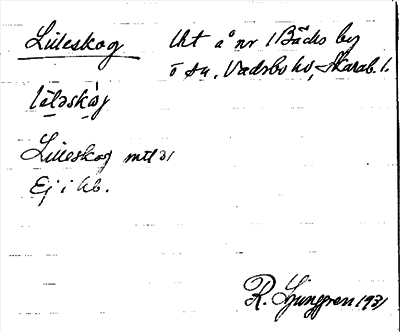 Lilleskog
Uht å nr 1 Bäcks by
i sn, Vadsbo hd, Skarab. l.
Lilleskog mtl 31
Ej i hb.
R. Ljunggren 1931